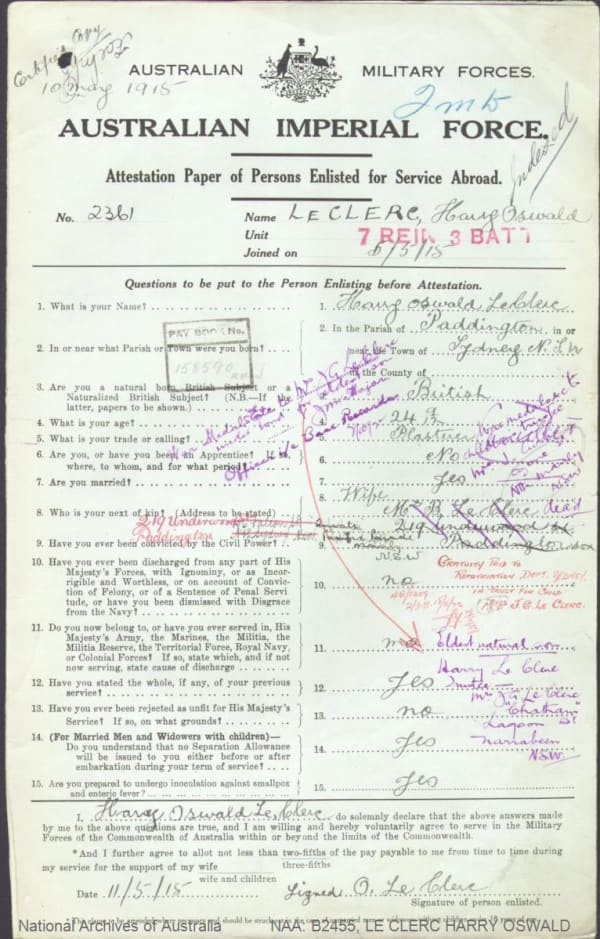 Certified Copy
10 May 1915
AUSTRALIAN MILITARY FORCES.
AUSTRALIAN IMPERIAL FORCE.
Indexed
Attestation Paper of Persons Enlisted for Service Abroad.
No. 2361 Name LE CLERC, Harry Oswald
Unit 7 REIN 3 BATT
Joined on 5/5/15
Questions to be put to the Person Enlisting before Attestation.
1. What is your Name? 1. Harry Oswald Le Clerc
2. In or near what Parish or Town were you born? 2. In the Parish of Paddington in or
near the Town of Sydney N.S.W
in the County of
PAY BOOK No.
3. Are you a natural born British Subject or a
Naturalized British Subject? (N.B.—If the
latter, papers to be shown.) 3. British
4. What is your age? 4. 24
5. What is your trade or calling? 5. Plasterer
6. Are you, or have you been, an Apprentice? If so,
where, to whom, and for what period? 6. No
7. Are you married? 7. Yes
8. Who is your next of kin? (Address to be stated) 8. Wife
Mrs B. Le Clerc dead
219 Underwood St
Paddington
219 Underwood
Paddington
N.S.W
9. Have you ever been convicted by the Civil Power? 9.
10. Have you ever been discharged from any part of His
Majesty's Forces, with Ignominy, or as Incor-
rigible and Worthless, or on account of Convic-
tion of Felony, or of a Sentence of Penal Servi-
tude, or have you been dismissed with Disgrace
from the Navy? 10. no
Gratuity paid to
Repatriation Dept.
in trust for child
Mrs J. G. Le Clerc.
11. Do you now belong to, or have you ever served in, His
Majesty's Army, the Marines, the Militia, the
Militia Reserve, the Territorial Force, Royal Navy,
or Colonial Forces? If so, state which, and if not
now serving, state cause of discharge 11. no
Eldest natural son
Harry Le Clerc
Trustee—
Mrs J. G. Le Clerc
"Chatham"
Lagoon St
Narrabeen
NSW.
12. Have you stated the whole, if any, of your previous
service? 12. Yes
13. Have you ever been rejected as unfit for His Majesty's
Service? If so, on what grounds? 13. no
14. (For Married Men and Widowers with children)—
Do you understand that no Separation Allowance
will be issued to you either before or after
embarkation during your term of service? 14. Yes
15. Are you prepared to undergo inoculation against smallpox
and enteric fever? 15. Yes
I, Harry Oswald Le Clerc do solemnly declare that the above answers made
by me to the above questions are true, and I am willing and hereby voluntarily agree to serve in the Military
Forces of the Commonwealth of Australia within or beyond the limits of the Commonwealth.
*And I further agree to allot not less than two-fifths of the pay payable to me from time to time during
three-fifths
my service for the support of my wife
wife and children
Date 11/5/15 Signed O. Le Clerc
Signature of person enlisted.
National Archives of Australia NAA: B2455, LE CLERC HARRY OSWALD